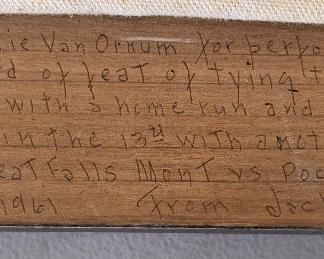 ie Van Ornum for perfo
d of feat of tying t
with a home run and
in the 13th with anot
eat Falls Mont vs Poc
1961 From Jac